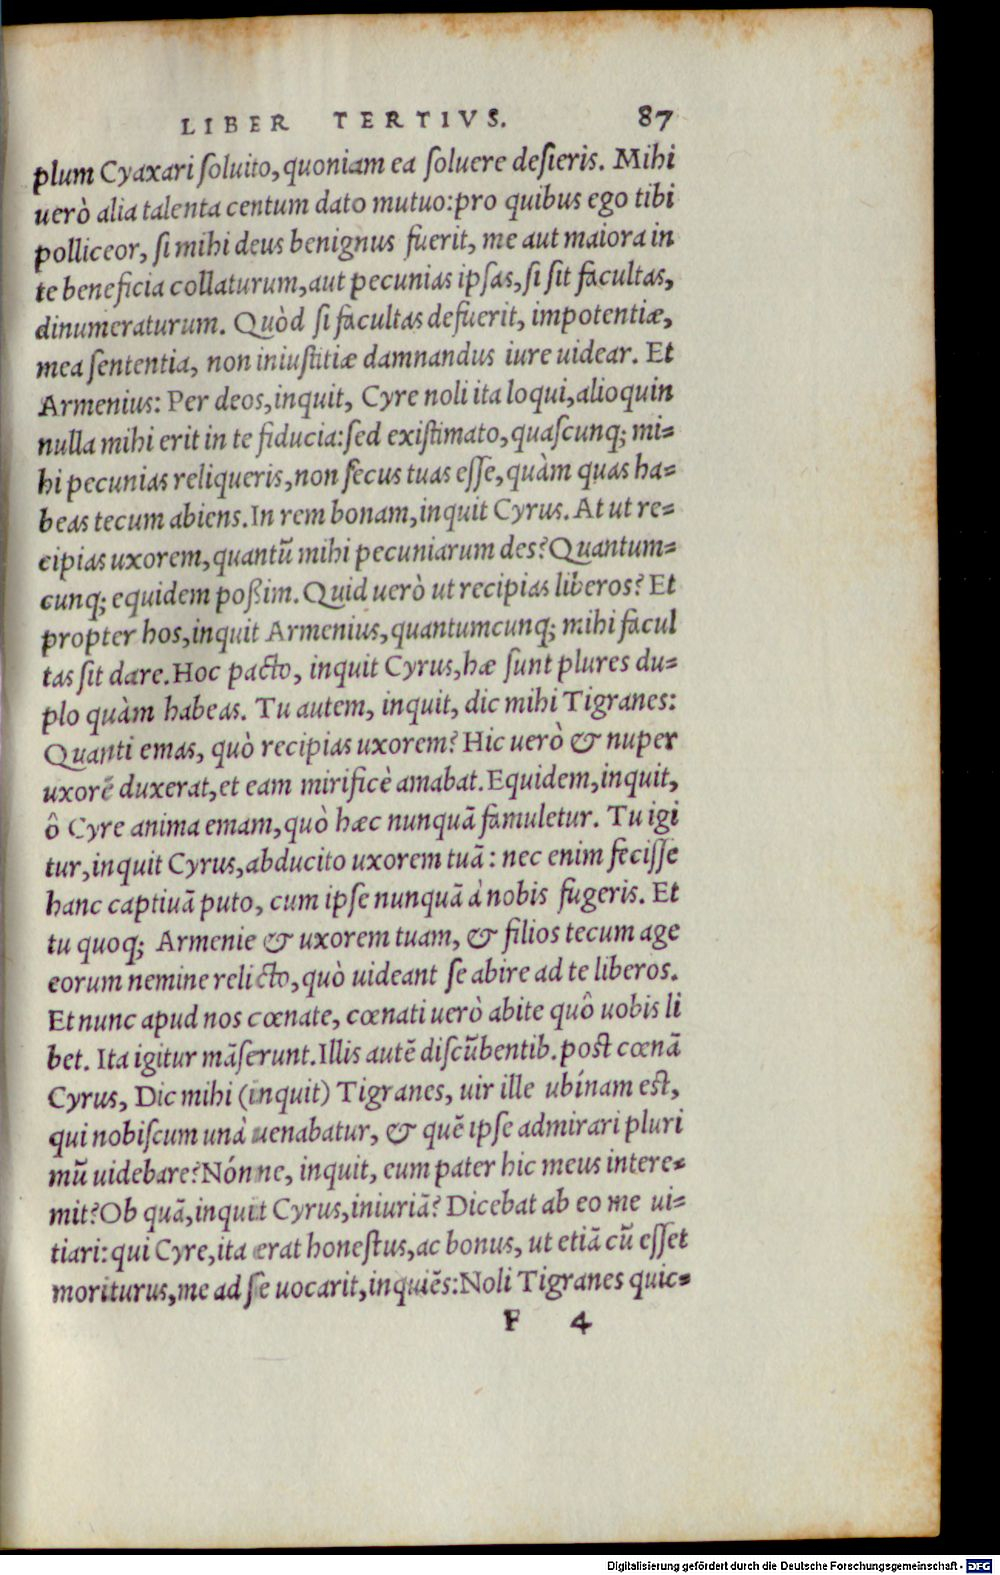 LIBER TERTIVS. 87
plum Cyaxari ſoluito, quoniam ea ſoluere deſieris. Mihi
uerò alia talenta centum dato mutuo: pro quibus ego tibi
polliceor, ſi mihi deus benignus fuerit, me aut maiora in
te beneficia collaturum, aut pecunias ipſas, ſi ſit facultas,
dinumeraturum. Quòd ſi facultas defuerit, impotentiæ,
mea ſententia, non iniuſtitiæ damnandus iure uidear. Et
Armenius: Per deos, inquit, Cyre noli ita loqui, alioquin
nulla mihi erit in te fiducia: ſed exiſtimato, quaſcunq; mi=
hi pecunias reliqueris, non ſecus tuas eſſe, quàm quas ha=
beas tecum abiens. In rem bonam, inquit Cyrus. At ut re=
cipias uxorem, quantũ mihi pecuniarum des? Quantum=
cunq; equidem poßim. Quid uerò ut recipias liberos? Et
propter hos, inquit Armenius, quantumcunq; mihi facul
tas ſit dare. Hoc pacto, inquit Cyrus, hæ ſunt plures du=
plo quàm habeas. Tu autem, inquit, dic mihi Tigranes:
Quanti emas, quò recipias uxorem? Hic uerò & nuper
uxorẽ duxerat, et eam mirificè amabat. Equidem, inquit,
ô Cyre anima emam, quò hæc nunquã famuletur. Tu igi
tur, inquit Cyrus, abducito uxorem tuã: nec enim feciſſe
hanc captiuã puto, cum ipſe nunquã à nobis fugeris. Et
tu quoq; Armenie & uxorem tuam, & filios tecum age
eorum nemine relicto, quò uideant ſe abire ad te liberos.
Et nunc apud nos cœnate, cœnati uerò abite quô uobis li
bet. Ita igitur mãſerunt. Illis autẽ diſcũbentib. poſt cœnã
Cyrus, Dic mihi (inquit) Tigranes, uir ille ubínam eſt,
qui nobiſcum unà uenabatur, & quẽ ipſe admirari pluri
mũ uidebare? Nónne, inquit, eum pater hic meus intere=
mit? Ob quã, inquit Cyrus, iniuriã? Dicebat ab eo me ui=
tiari: qui Cyre, ita erat honeſtus, ac bonus, ut etiã cũ eſſet
moriturus, me ad ſe uocarit, inquiẽs: Noli Tigranes quic=
F 4
Digitalisierung gefördert durch die Deutsche Forschungsgemeinschaft - DFG